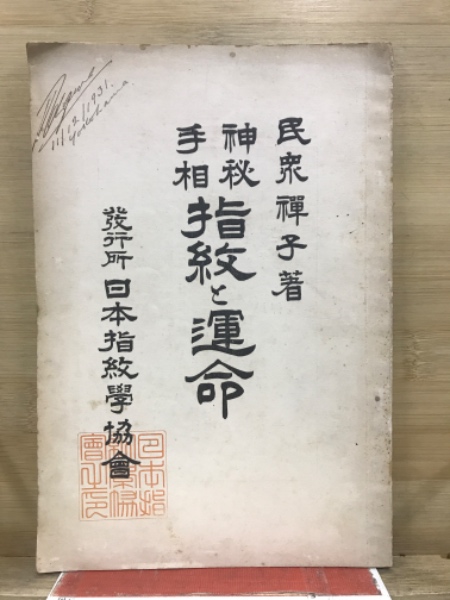 民衆禅子著
神秘
手相
指紋と運命
發行所 日本指紋學協會
11/12/1931.
Yokohama